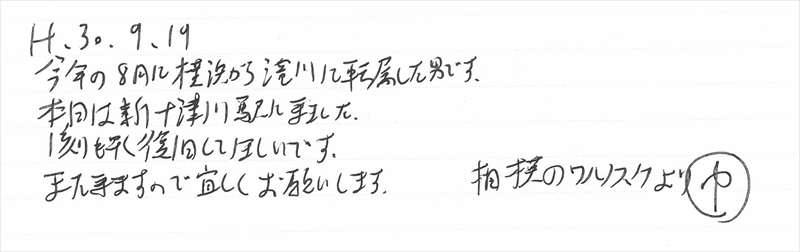 H.30.9.19
今年の8月に横浜から滝川に転属した男です。
本日は新十津川駅に来ました。
1刻も早く復旧してほしいです。
また来ますので宜しくお願いします。
相模のワルノスケより 中